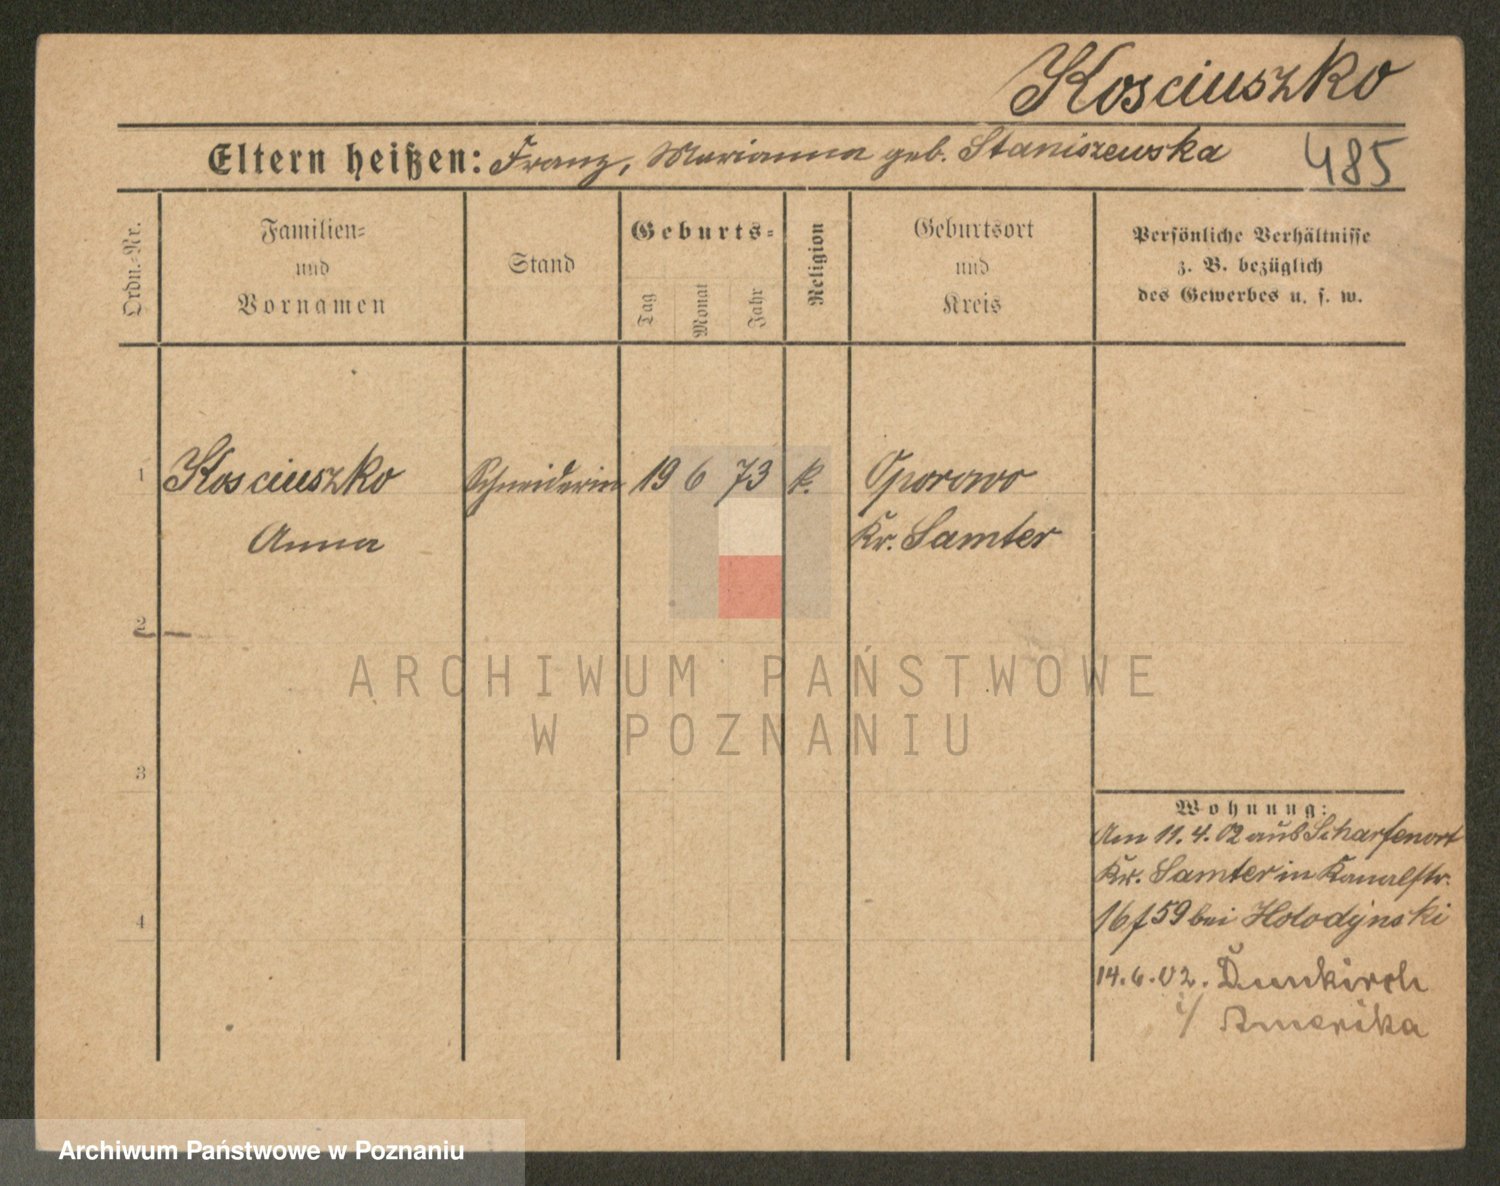 Kosciuszko
Eltern heißen: Franz, Marianna geb. Staniszewska 485
Ordn.-Nr.
Familien-
und
Vornamen
Stand
Geburts-
Tag
Monat
Jahr
Religion
Geburtsort
und
Kreis
Persönliche Verhältnisse
z. B. bezüglich
des Gewerbes u. s. w.
1 Kosciuszko Schneiderin 19 6 73 k. Oporowo
Anna Kr. Samter
2
ARCHIWUM PAŃSTWOWE
W POZNANIU
3
Wohnung:
Am 11.4.02 aus Scharfenort
Kr. Samter in Kanalstr.
4
16 f 59 bei Holodynski
14.6.02. Dunkirch
i/ Amerika
Archiwum Państwowe w Poznaniu